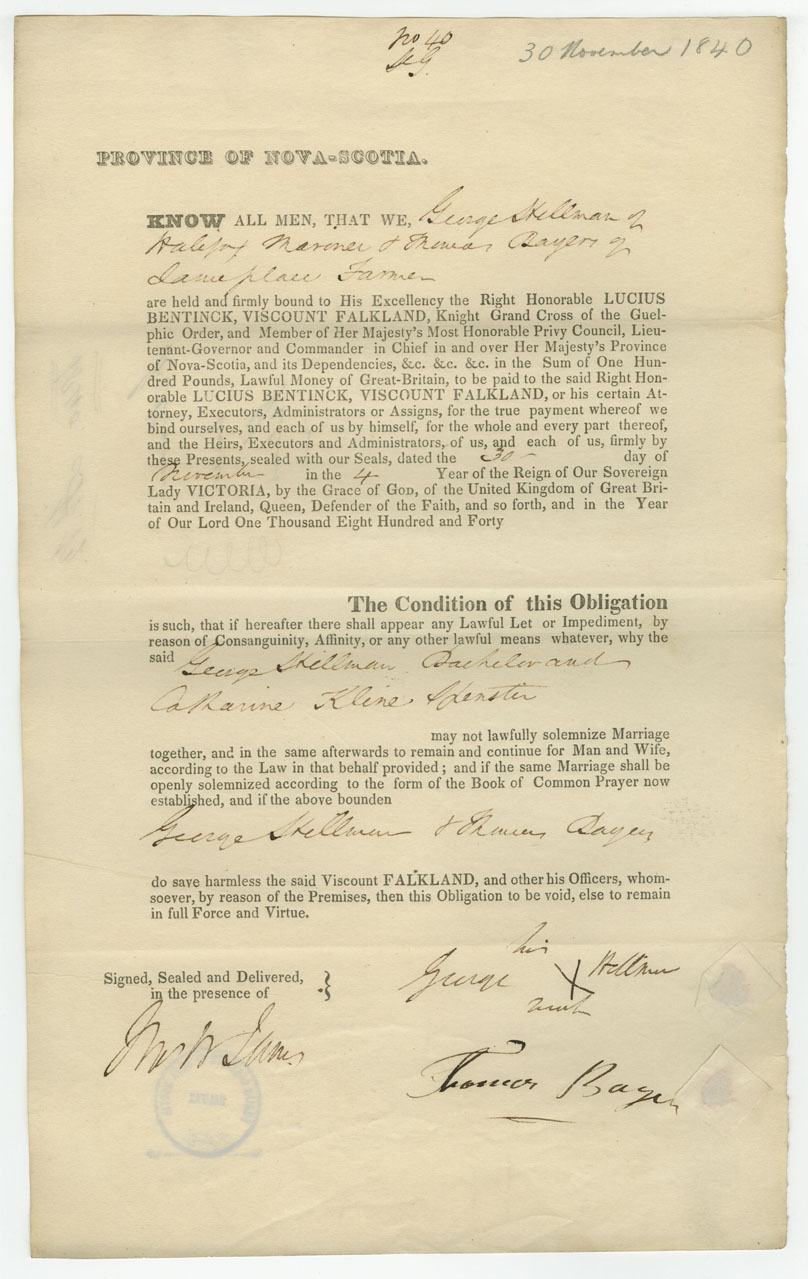 No 40
30 November 1840
PROVINCE OF NOVA-SCOTIA.
KNOW ALL MEN, THAT WE, George Stillman of
Halifax Mariner & Thomas Bayers of
same place Farmer
are held and firmly bound to His Excellency the Right Honorable LUCIUS
BENTINCK, VISCOUNT FALKLAND, Knight Grand Cross of the Guel-
phic Order, and Member of Her Majesty's Most Honorable Privy Council, Lieu-
tenant-Governor and Commander in Chief in and over Her Majesty's Province
of Nova-Scotia, and its Dependencies, &c. &c. &c. in the Sum of One Hun-
dred Pounds, Lawful Money of Great-Britain, to be paid to the said Right Hon-
orable LUCIUS BENTINCK, VISCOUNT FALKLAND, or his certain At-
torney, Executors, Administrators or Assigns, for the true payment whereof we
bind ourselves, and each of us by himself, for the whole and every part thereof,
and the Heirs, Executors and Administrators, of us, and each of us, firmly by
these Presents, sealed with our Seals, dated the 30 day of
November in the 4 Year of the Reign of Our Sovereign
Lady VICTORIA, by the Grace of GOD, of the United Kingdom of Great Bri-
tain and Ireland, Queen, Defender of the Faith, and so forth, and in the Year
of Our Lord One Thousand Eight Hundred and Forty
The Condition of this Obligation
is such, that if hereafter there shall appear any Lawful Let or Impediment, by
reason of Consanguinity, Affinity, or any other lawful means whatever, why the
said George Stillman Bachelor and
Catharine Kline Spinster
may not lawfully solemnize Marriage
together, and in the same afterwards to remain and continue for Man and Wife,
according to the Law in that behalf provided; and if the same Marriage shall be
openly solemnized according to the form of the Book of Common Prayer now
established, and if the above bounden
George Stillman & Thomas Bayers
do save harmless the said Viscount FALKLAND, and other his Officers, whom-
soever, by reason of the Premises, then this Obligation to be void, else to remain
in full Force and Virtue.
his
George X Stillman
mark
Signed, Sealed and Delivered,
in the presence of
Thomas Bayers